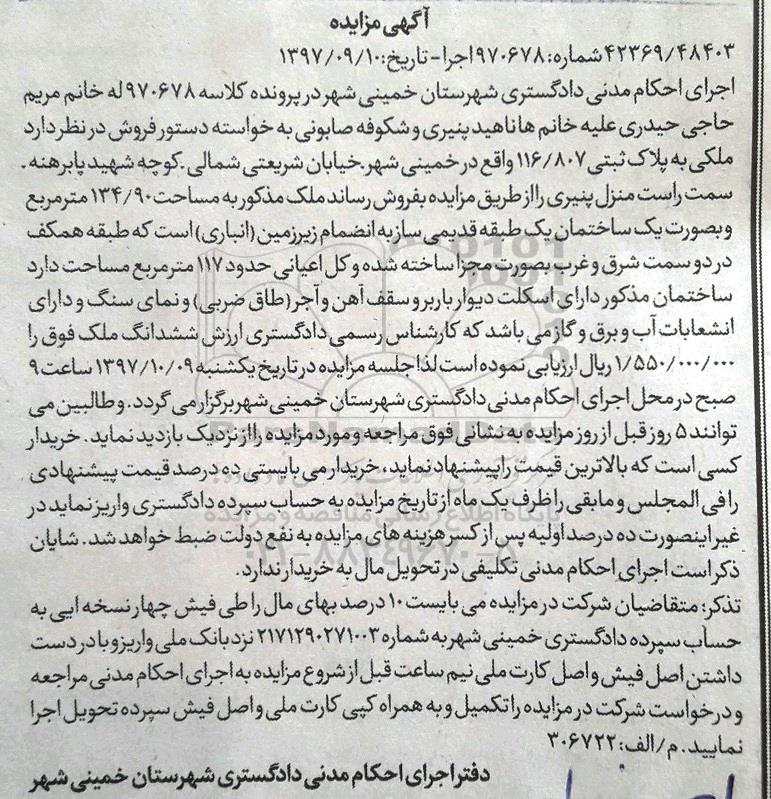 آگهی مزایده
۴۲۳۶۹/۴۸۴۰۳ شماره: ۹۷۰۶۷۸ اجرا - تاریخ: ۱۳۹۷/۰۹/۱۰
اجرای احکام مدنی دادگستری شهرستان خمینی شهر در پرونده کلاسه ۹۷۰۶۷۸ له خانم مریم
حاجی حیدری علیه خانم ها ناهید پنیری و شکوفه صابونی به خواسته دستور فروش در نظر دارد
ملکی به پلاک ثبتی ۱۱۶/۸۰۷ واقع در خمینی شهر. خیابان شریعتی شمالی. کوچه شهید پابرهنه.
سمت راست منزل پنیری را از طریق مزایده بفروش رساند ملک مذکور به مساحت ۱۳۴/۹۰ مترمربع
و بصورت یک ساختمان یک طبقه قدیمی ساز به انضمام زیرزمین (انباری) است که طبقه همکف
در دو سمت شرق و غرب بصورت مجزا ساخته شده و کل اعیانی حدود ۱۱۷ مترمربع مساحت دارد
ساختمان مذکور دارای اسکلت دیوار باربر و سقف آهن و آجر (طاق ضربی) و نمای سنگ و دارای
انشعابات آب و برق و گاز می باشد که کارشناس رسمی دادگستری ارزش ششدانگ ملک فوق را
۱/۵۵۰/۰۰۰/۰۰۰ ریال ارزیابی نموده است لذا جلسه مزایده در تاریخ یکشنبه ۱۳۹۷/۱۰/۰۹ ساعت ۹
صبح در محل اجرای احکام مدنی دادگستری شهرستان خمینی شهر برگزار می گردد. و طالبین می
توانند ۵ روز قبل از روز مزایده به نشانی فوق مراجعه و مورد مزایده را از نزدیک بازدید نماید. خریدار
کسی است که بالاترین قیمت را پیشنهاد نماید، خریدار می بایستی ده درصد قیمت پیشنهادی
را فی المجلس و مابقی را ظرف یک ماه از تاریخ مزایده به حساب سپرده دادگستری واریز نماید در
غیر اینصورت ده درصد اولیه پس از کسر هزینه های مزایده به نفع دولت ضبط خواهد شد. شایان
ذکر است اجرای احکام مدنی تکلیفی در تحویل مال به خریدار ندارد.
تذکر: متقاضیان شرکت در مزایده می بایست ۱۰ درصد بهای مال را طی فیش چهار نسخه ایی به
حساب سپرده دادگستری خمینی شهر به شماره ۲۱۷۱۲۹۰۲۷۱۰۰۳ نزد بانک ملی واریز و با در دست
داشتن اصل فیش و اصل کارت ملی نیم ساعت قبل از شروع مزایده به اجرای احکام مدنی مراجعه
و درخواست شرکت در مزایده را تکمیل و به همراه کپی کارت ملی و اصل فیش سپرده تحویل اجرا
نمایید. م/الف: ۳۰۶۷۲۲
دفتر اجرای احکام مدنی دادگستری شهرستان خمینی شهر